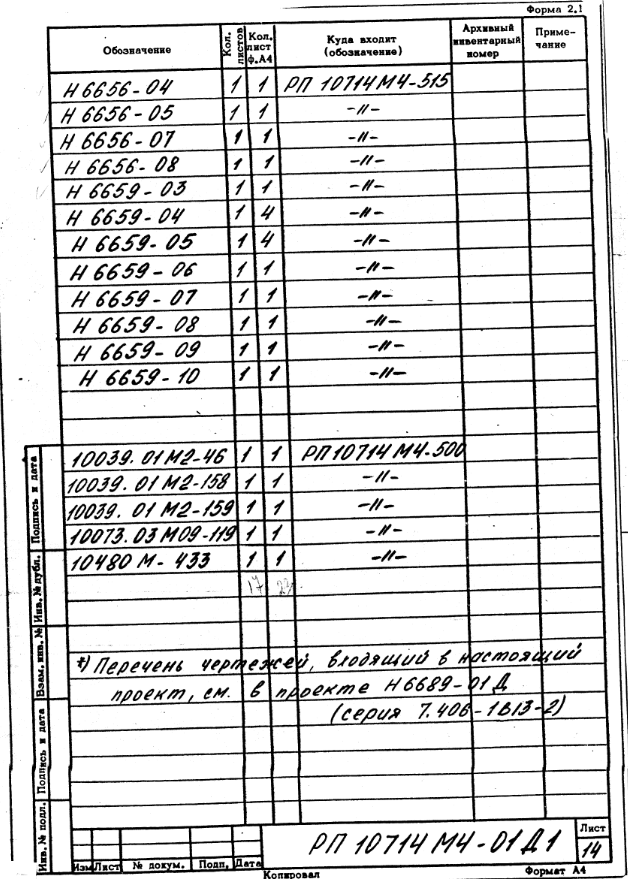 Форма 2.1
Обозначение Кол. листов Кол. лист ф.А4 Куда входит (обозначение) Архивный инвентарный номер Приме-чание
Н 6656-04 1 1 РП 10714 М4-515
Н 6656-05 1 1 -"-
Н 6656-07 1 1 -"-
Н 6656-08 1 1 -"-
Н 6659-03 1 1 -"-
Н 6659-04 1 4 -"-
Н 6659-05 1 4 -"-
Н 6659-06 1 1 -"-
Н 6659-07 1 1 -"-
Н 6659-08 1 1 -"-
Н 6659-09 1 1 -"-
Н 6659-10 1 1 -"-
10039.01М2-46 1 1 РП 10714 М4-500
10039.01М2-158 1 1 -"-
10039.01М2-159 1 1 -"-
10073.03М09-119 1 1 -"-
10480М-433 1 1 -"-
17 23
*) Перечень чертежей, входящий в настоящий
проект, см. в проекте Н6689-01Д
(серия 7.406-1В13-2)
Подпись и дата
Инв. № дубл.
Взам. инв. №
Подпись и дата
Инв. № подл.
РП 10714 М4-01Д1
Лист
14
Изм Лист № докум. Подп. Дата
Копировал Формат А4